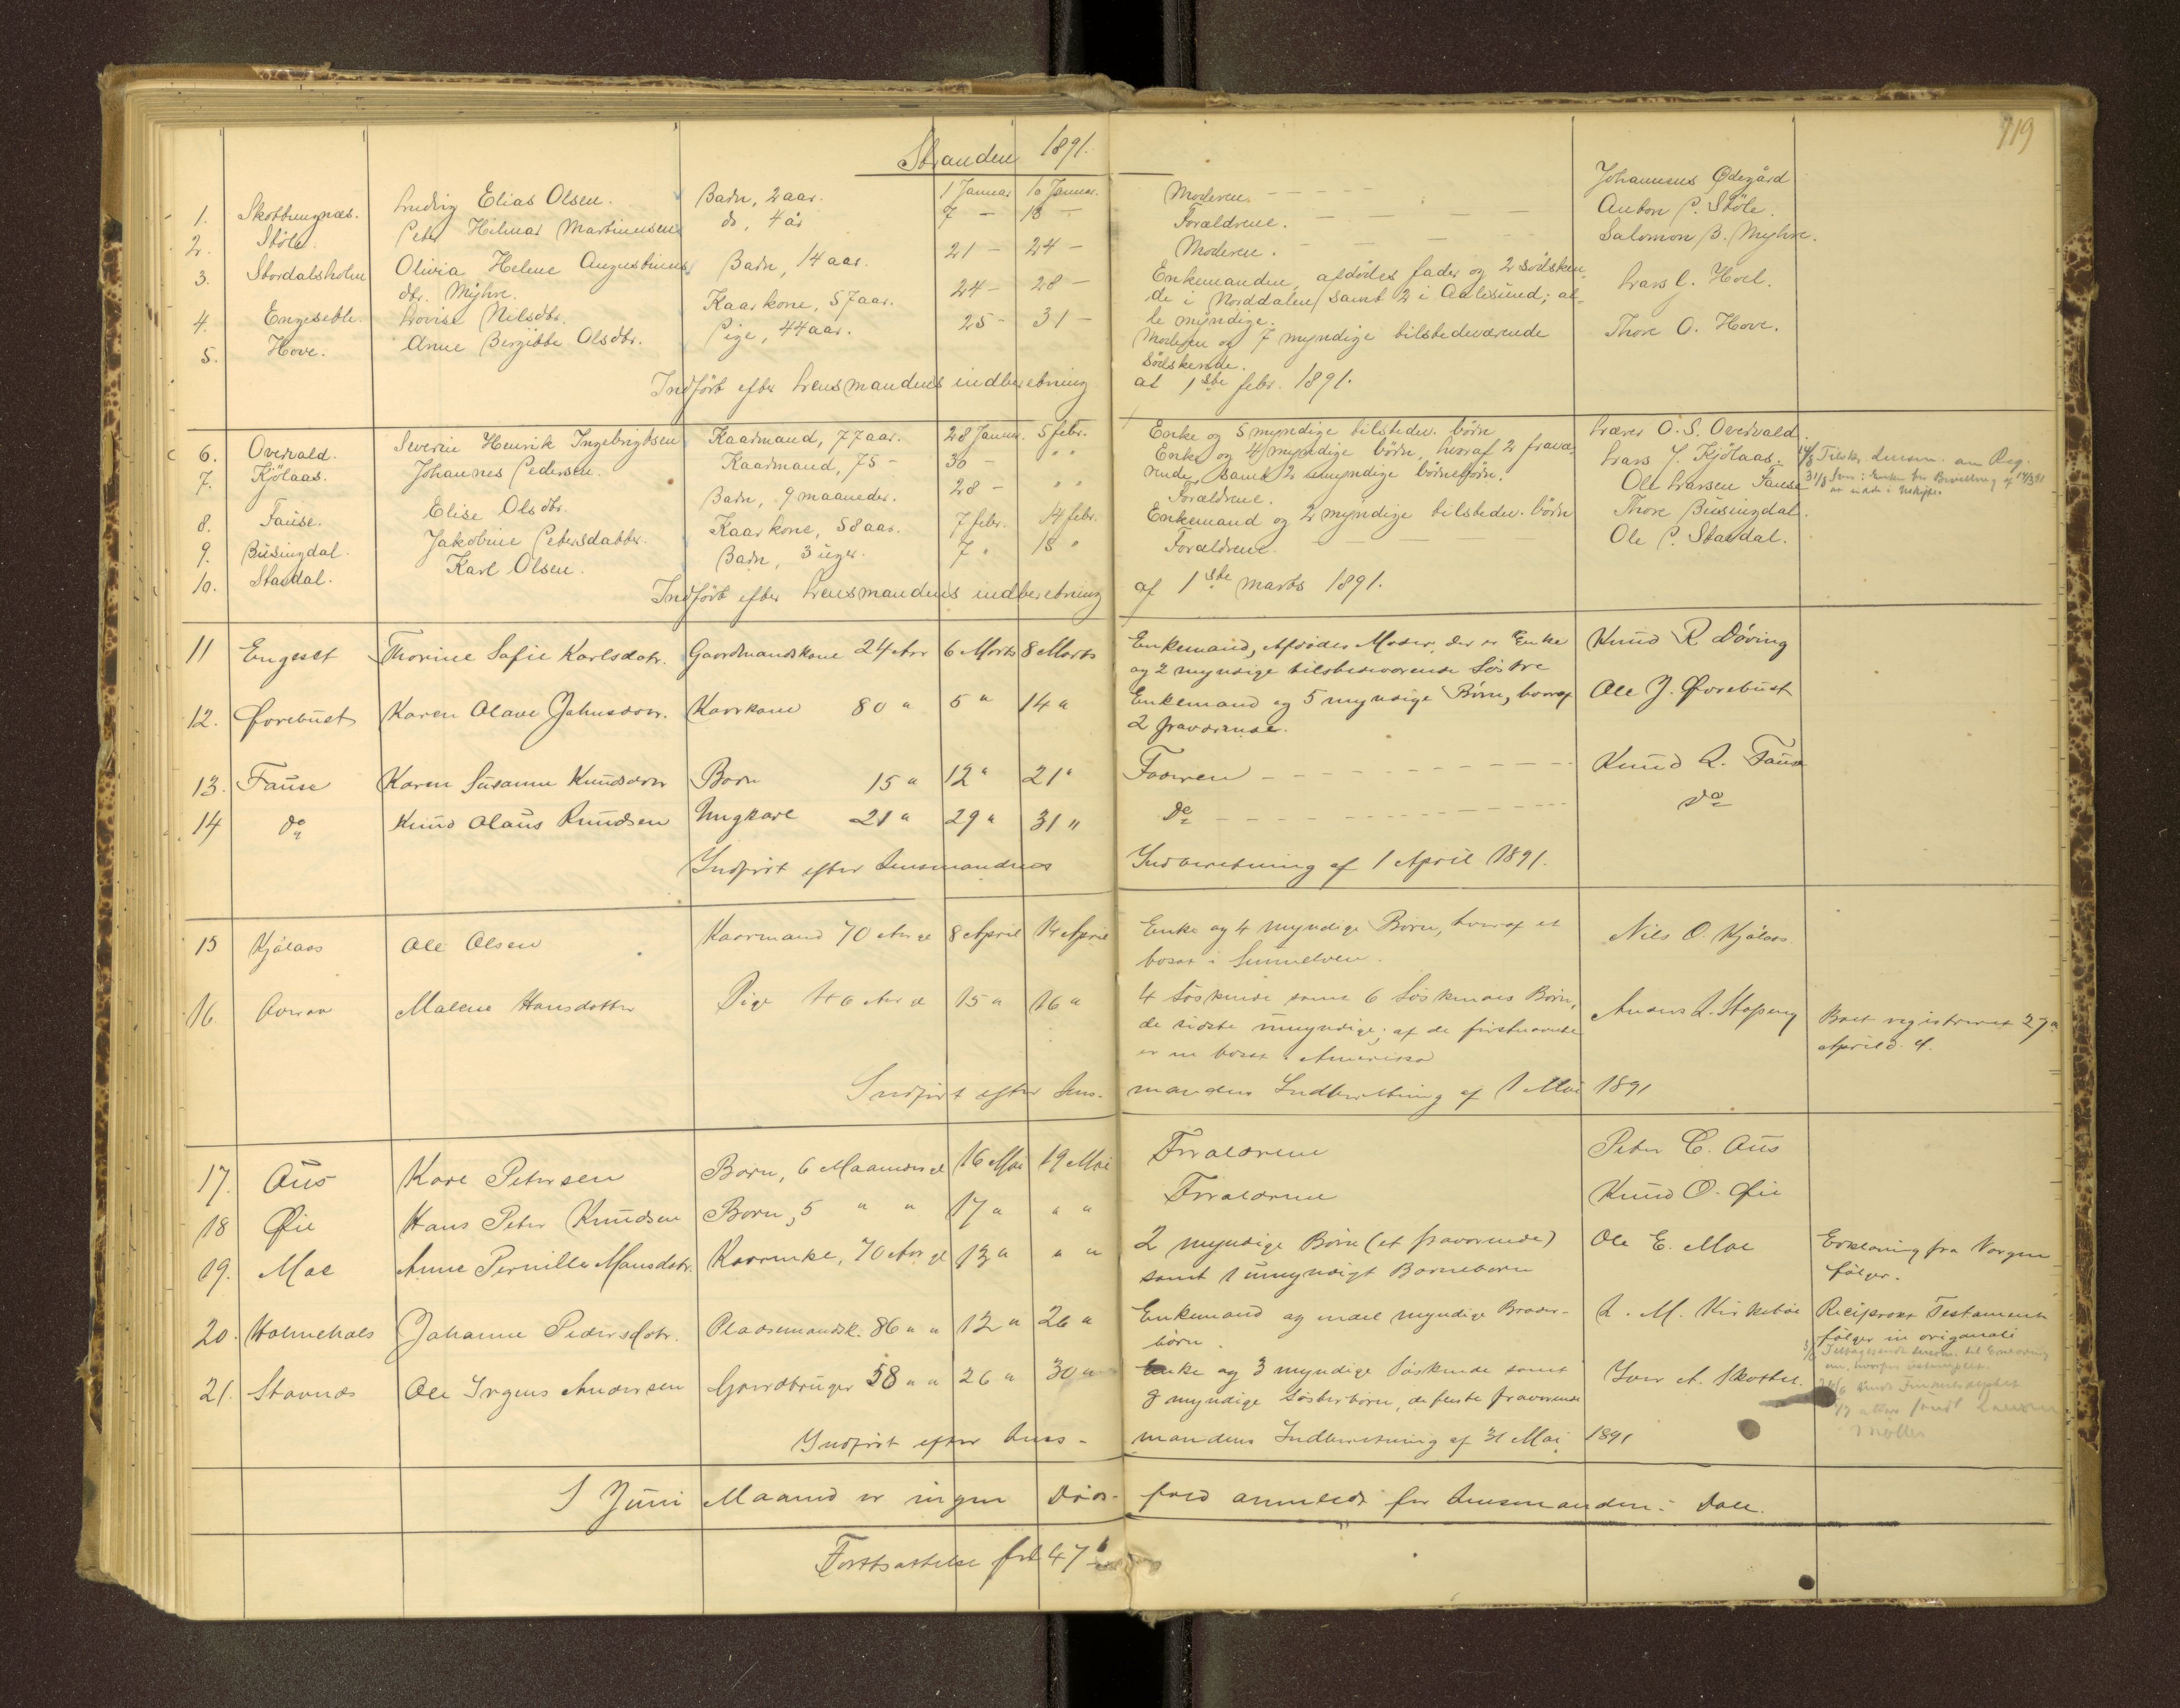 119
Stranden 1891.
1. Skotbungnæs. Ludvig Elias Olsen. Barn, 2 aar. 1 Januar 10 Januar. Moderen. Johannes Ødegård
2. Støle. Peter Hilmar Martinusen do, 4 år 7 - 13 - Forældrene. Anton P. Støle.
3. Stordalsholm Olivia Helene Augustinus- Barn, 14 aar. 21 - 24 - Moderen. Salomon B. Myhre.
dtr. Myhre.
4. Engesetli. Lovise Nilsdtr. Kaarkone, 57 aar. 24 - 28 - Enkemanden, afdødes fader og 2 sødsken- Lars C. Hoel.
de i Norddalen samt 2 i Aalesund; al-
le myndige.
5. Hove. Anne Bergitte Olsdtr. Pige, 44 aar. 25 - 31 - Moderen og 7 myndige tilstedeværende Thore O. Hove.
sødskende.
Indført efter Lensmandens indberetning af 1ste febr. 1891.
6. Overvald. Severin Henrik Ingebrigtsen Kaarmand, 77 aar. 28 Januar. 5 febr. Enke og 5 myndige tilstedev. børn Lærer O. S. Overvald.
7. Kjølaas. Johannes Pedersen. Kaarmand, 75 - 30 - " " Enke og 4 myndige børn, hvoraf 2 fravæ- Lars J. Kjølaas.
rende, samt 2 umyndige børnebørn.
8. Fause. Elise Olsdtr. Barn, 9 maaneder. 28 - " " Forældrene. Ole Larsen Fause
9. Busingdal. Jakobine Petersdatter. Kaarkone, 58 aar. 7 febr. 14 febr. Enkemand og 2 myndige tilstedev. børn Thore Busingdal.
10. Stavdal. Karl Olsen. Barn, 3 uger. 7 " 15 " Forældrene. Ole P. Stavdal.
Indført efter Lensmandens indberetning af 1ste marts 1891.
11 Engeset Thorine Sofie Karlsdatr. Gaardmandskone 24 Aar 6 Marts 8 Marts Enkemand, Afdødes Moder, der er Enke Knud R Døving
og 2 myndige tilstedeværende Søstre
12. Ørebust Karen Olave Johnsdatr. Kaarkone 80 " 5 " 14 " Enkemand og 5 myndige Børn, hvoraf Ole J. Ørebust
2 fraværende.
13. Fause Karen Susanne Knudsdatr Barn 15 " 12 " 21 " Faderen Knud L. Fause
14 Do Knud Olaus Knudsen Ungkarl 21 " 29 " 31 " Do Do
Indført efter Lensmandens Indberetning af 1 April 1891.
15 Kjølaas Ole Olsen Kaarmand 70 Aar gl 8 April 14 April Enke og 4 myndige Børn, hvoraf et Nils O. Kjølaas
bosat i Sunnelven.
16. Malene Hansdatter Pige 46 Aar gl 15 " 16 " 4 Søskende samt 6 Søskendes Børn, Anders L.
de sidste umyndige; af de førstnævnte Boet registreret 27
er en bosat i Amerika April d. A.
Indført efter Lens- mandens Indberetning af 1 Mai 1891
17. Aus Karl Petersen Barn, 6 Maaneder gl 16 Mai 19 Mai Forældrene Peter C. Aus
18 Øie Hans Peter Knudsen Barn, 5 " " 17 " " " Forældrene Knud O. Øie
19. Moe Anne Pernille Monsdatr. Kaarenke, 70 Aar gl 13 " " " 2 myndige Børn (et fraværende) Ole E. Moe Erklæring fra Værgen
samt 1 umyndigt Barnebarn følger.
20. Holmehals Johanne Pedersdatr. Pladsemandsk. 86 " " 12 " 26 " Enkemand og endel myndige Broder- L. M. Kirkebøe Reciprokt Testament
børn. følger in originali
21. Stavnæs Ole Irgens Andersen Gaardbruger 58 " " 26 " 30 " Enke og 3 myndige Søskende samt Iver A. Skotte.
8 myndige Søsterbørn, de fleste fraværende
Indført efter Lens- mandens Indberetning af 31 Mai 1891
I Juni Maaned er ingen Døds- fald anmeldt for Lensmanden. Dale.
Fortsættelse fol 47